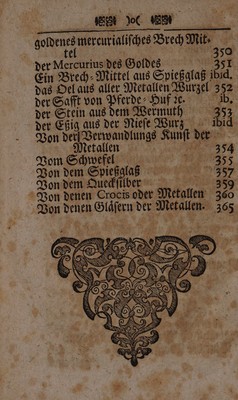 goldenes mercurialisches Brech Mit-
tel 350
der Mercurius des Goldes 351
Ein Brech-Mittel aus Spießglaß ibid.
das Oel aus aller Metallen Wurzel 352
der Safft von Pferde-Huf ꝛc. ib.
der Stein aus dem Wermuth 353
der Eßig aus der Niese Wurz ibid
Von der Verwandlungs Kunst der
Metallen 354
Vom Schwefel 355
Von dem Spießglaß 357
Von dem Quecksilber 359
Von denen Crocis oder Metallen 360
Von denen Gläsern der Metallen. 365